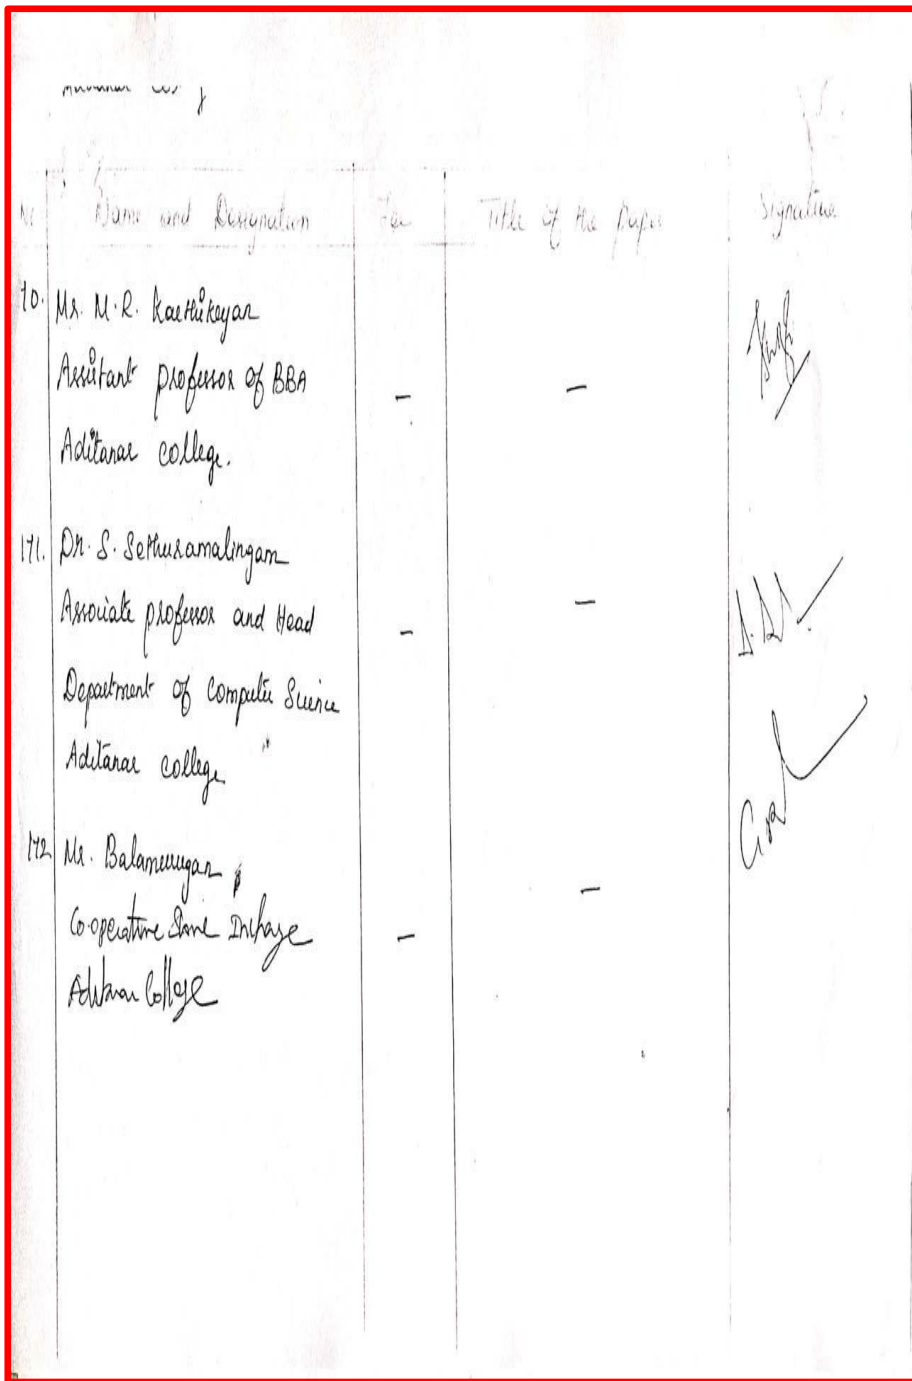 Name and Designation Fee Title of the paper Signature
10. Mr. M.R. Karthikeyan
Assistant professor of BBA
Aditanar college.
- -
171. Dr. S. Sethuramalingam
Associate professor and Head
Department of Computer Science
Aditanar college
- -
172 Mr. Balamurugan
Co-operative Store Incharge
Aditanar College
- -